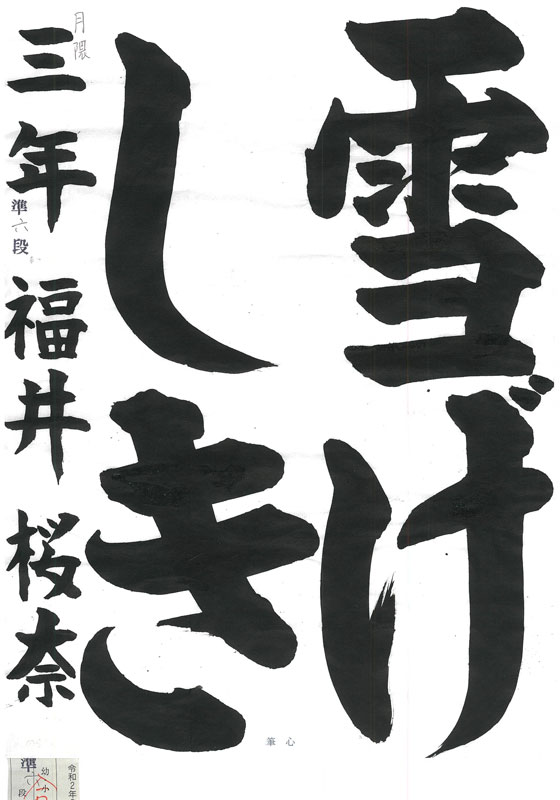 雪げ
しき
月隈
三年 福井 桜奈
準六段
心筆
令和2年
幼小
準六段